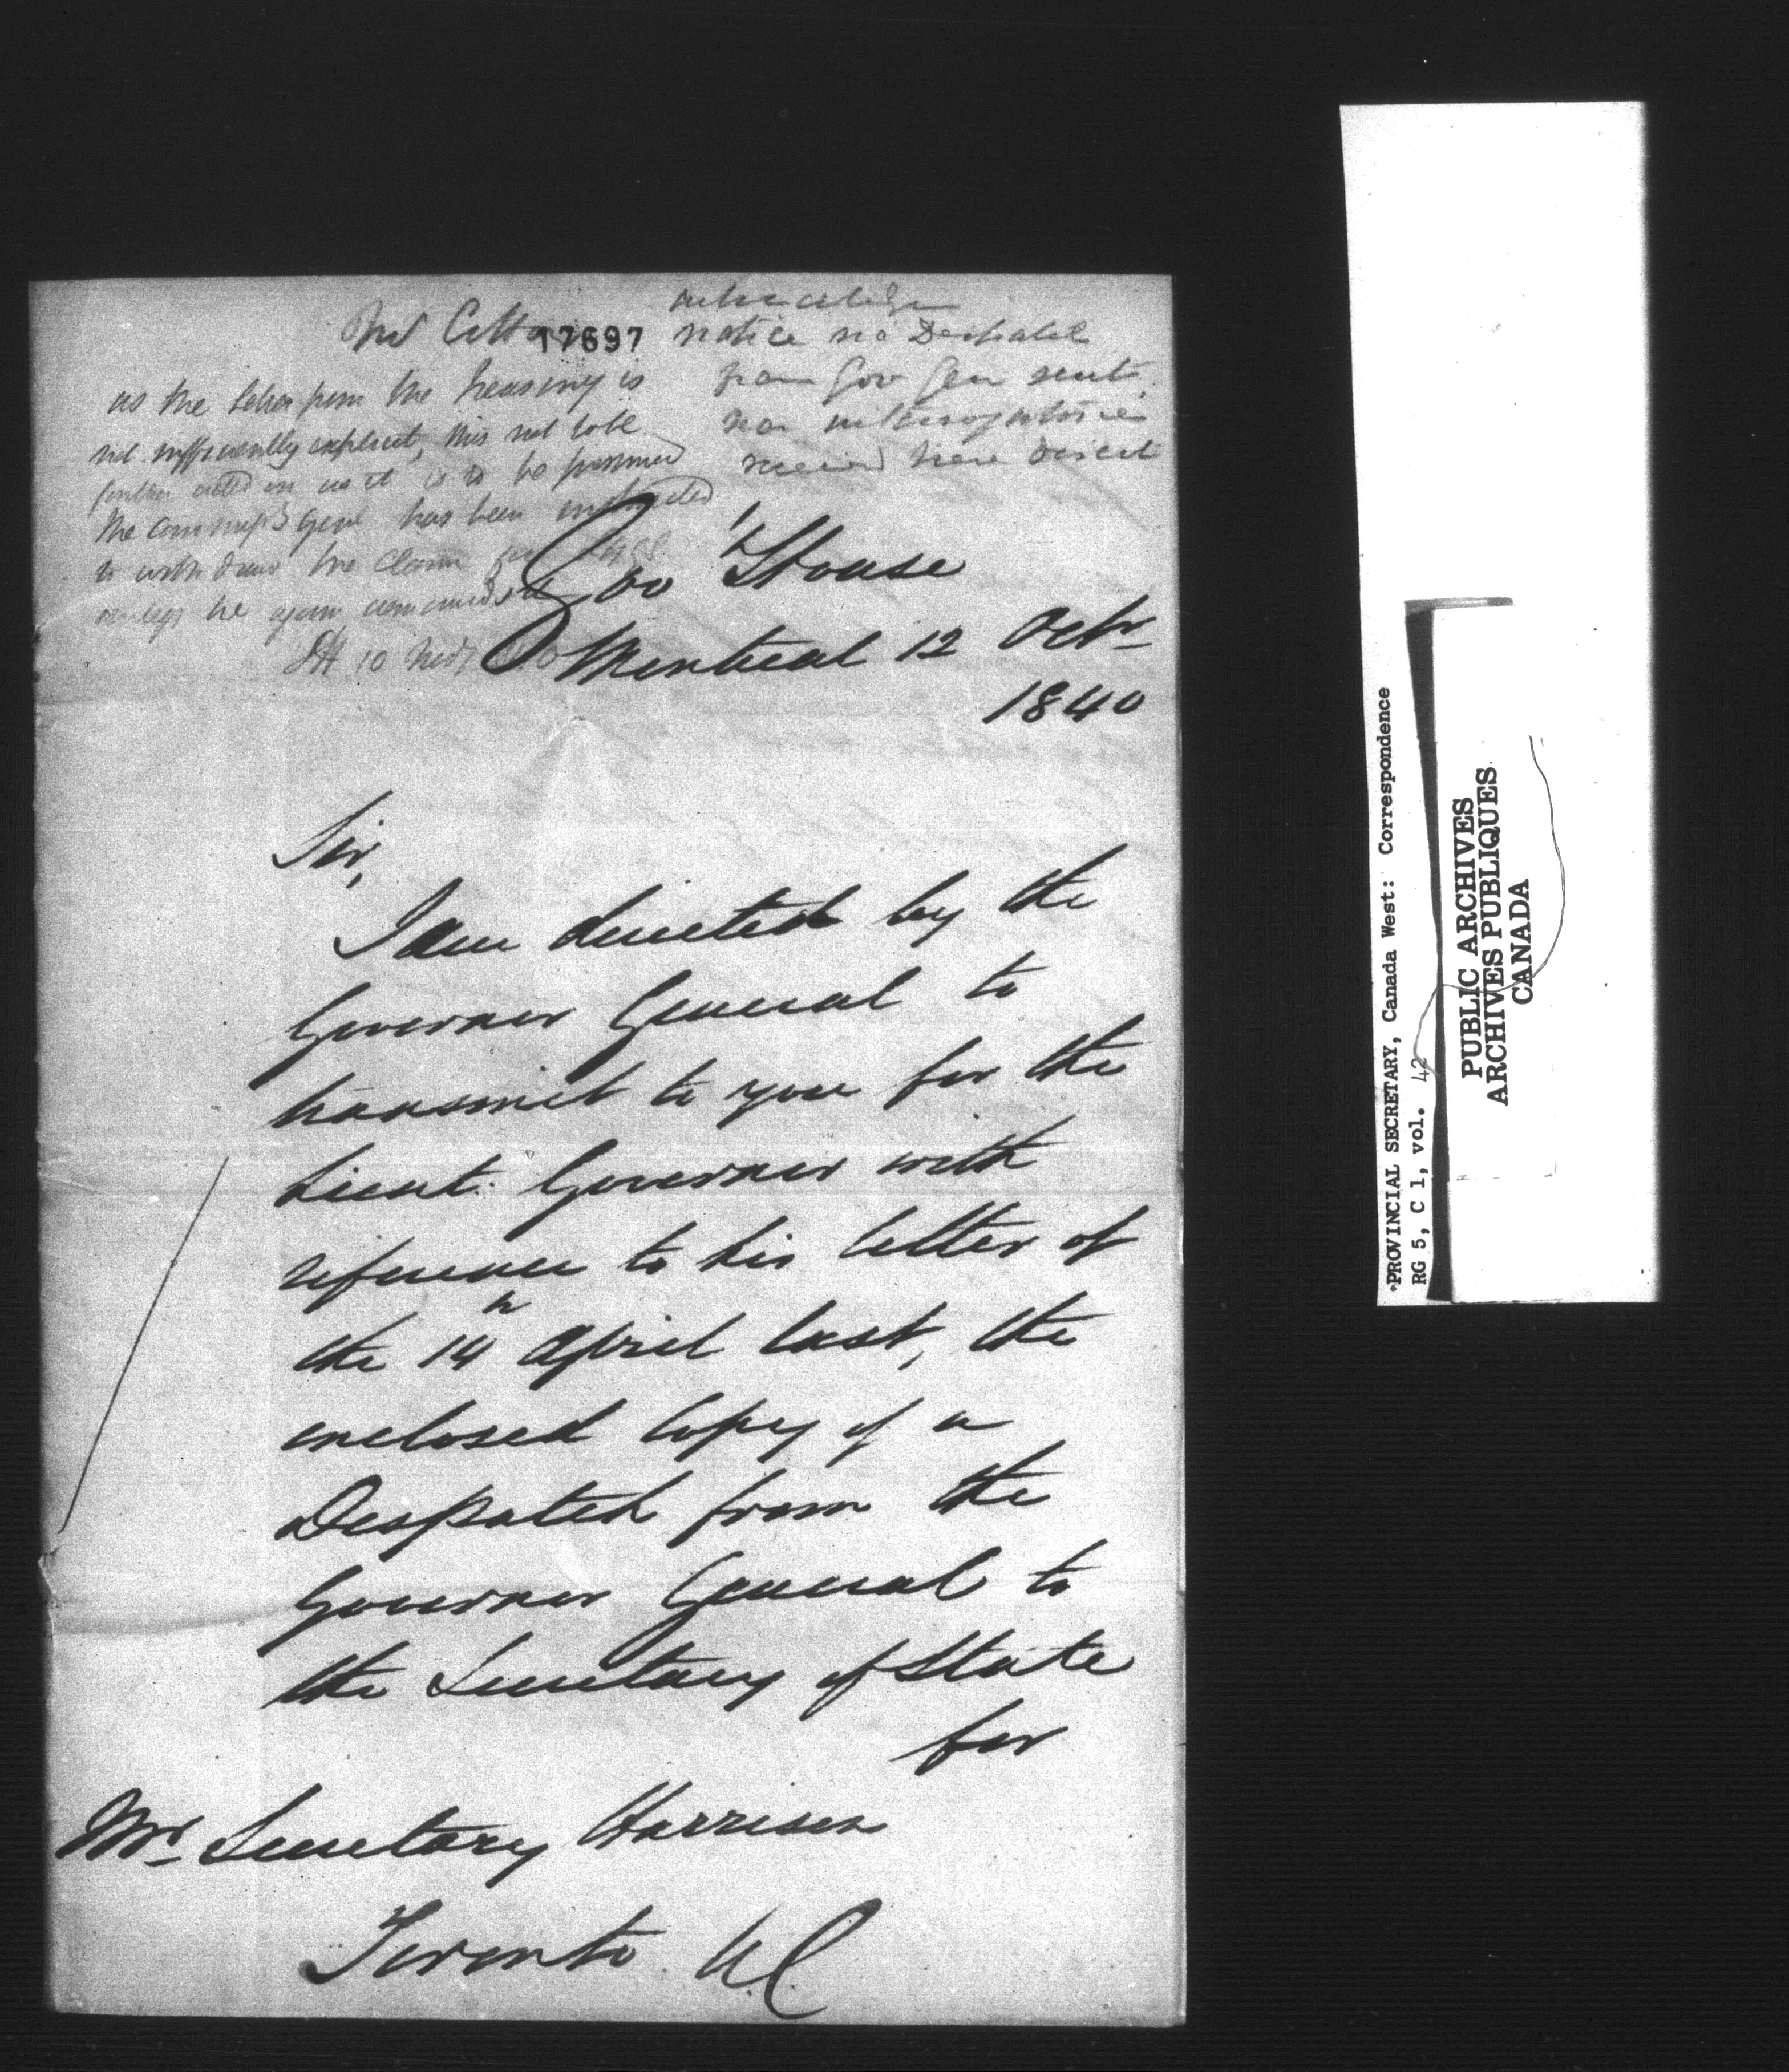 17697
notice no Despatch
from Gov Gen sent
nor
received here
as the letter from the Treasury is
not sufficiently explicit, this not to be
further acted on as it is to be presumed
the Commiss Genl has been instructed
to withdraw the claim
he again
10 Novr
Gov't House
Montreal 12 Octr
1840
Sir,
I am directed by the
Governor General to
transmit to you for the
Lieut. Governor with
reference to his letter of
the 14th April last, the
enclosed Copy of a
Despatch from the
Governor General to
the Secretary of State
for
Mr Secretary Harrison
Toronto U.C.
PROVINCIAL SECRETARY, Canada West: Correspondence
RG 5, C 1, vol. 42
PUBLIC ARCHIVES
ARCHIVES PUBLIQUES
CANADA